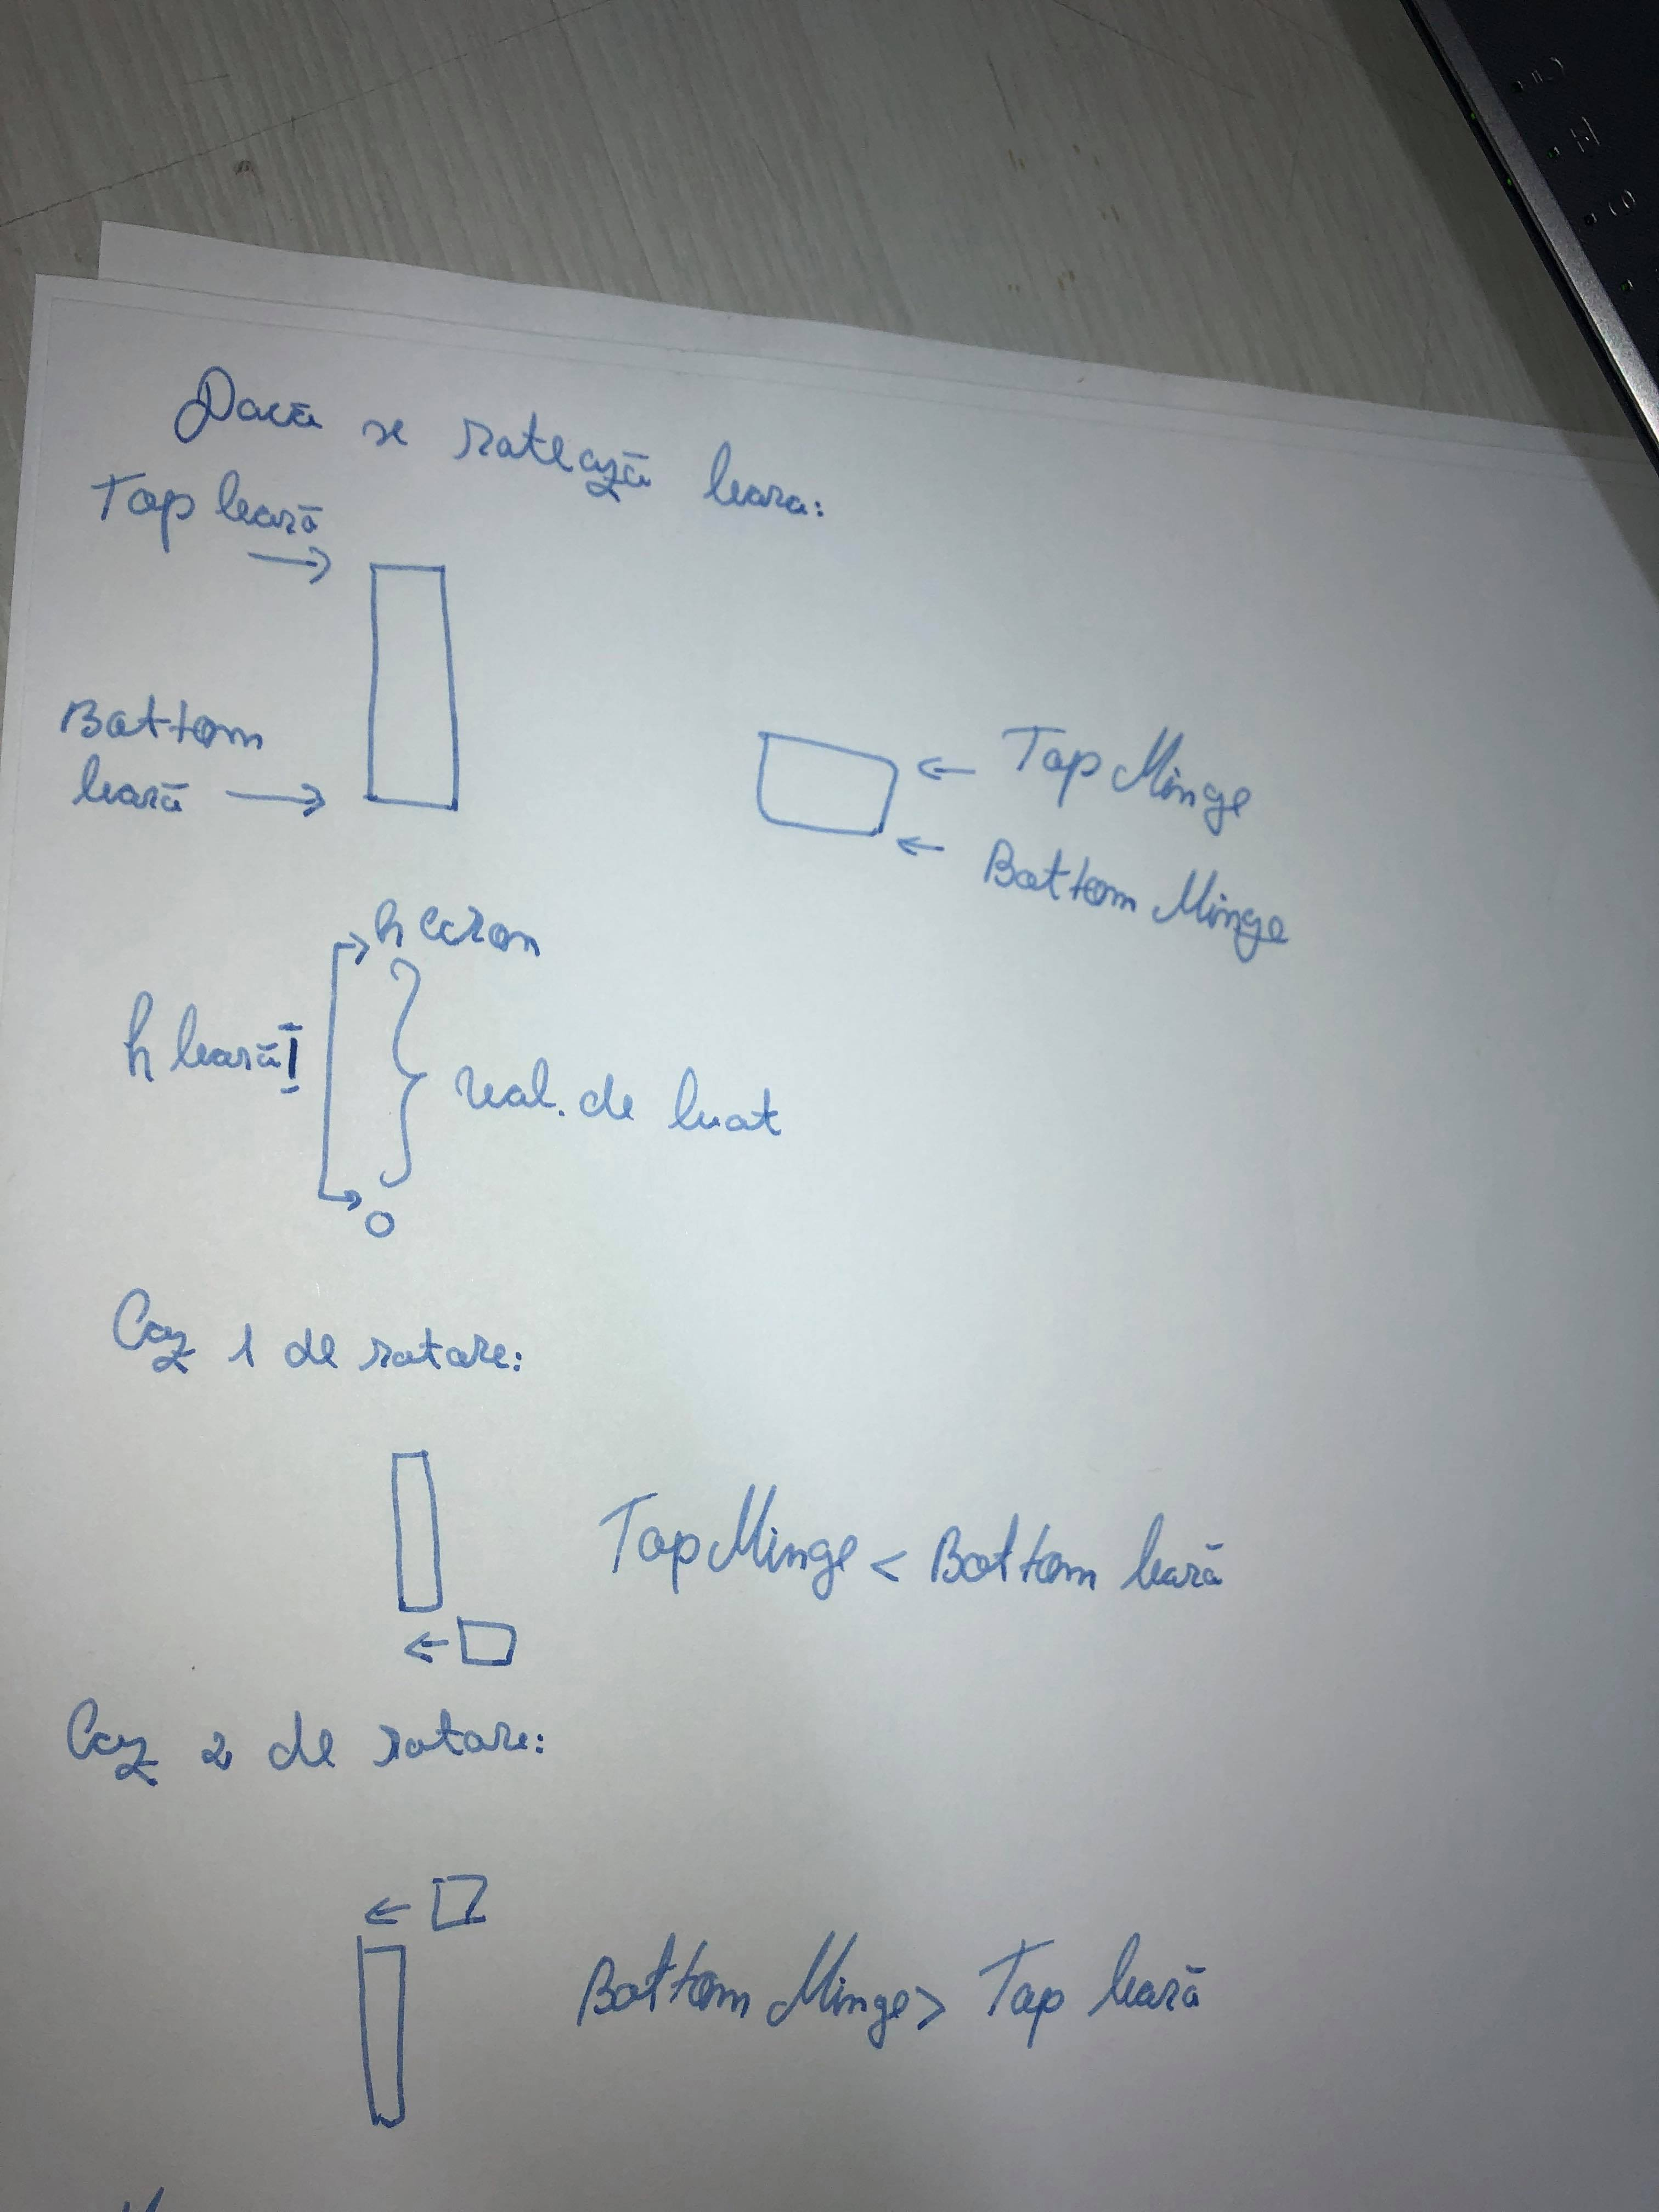 Dacă se ratează bara:
Top bară
Bottom
bară
Top Minge
Bottom Minge
h ecran
h bară
val. de luat
0
Caz 1 de ratare:
Top Minge < Bottom bară
Caz 2 de ratare:
Bottom Minge > Top bară